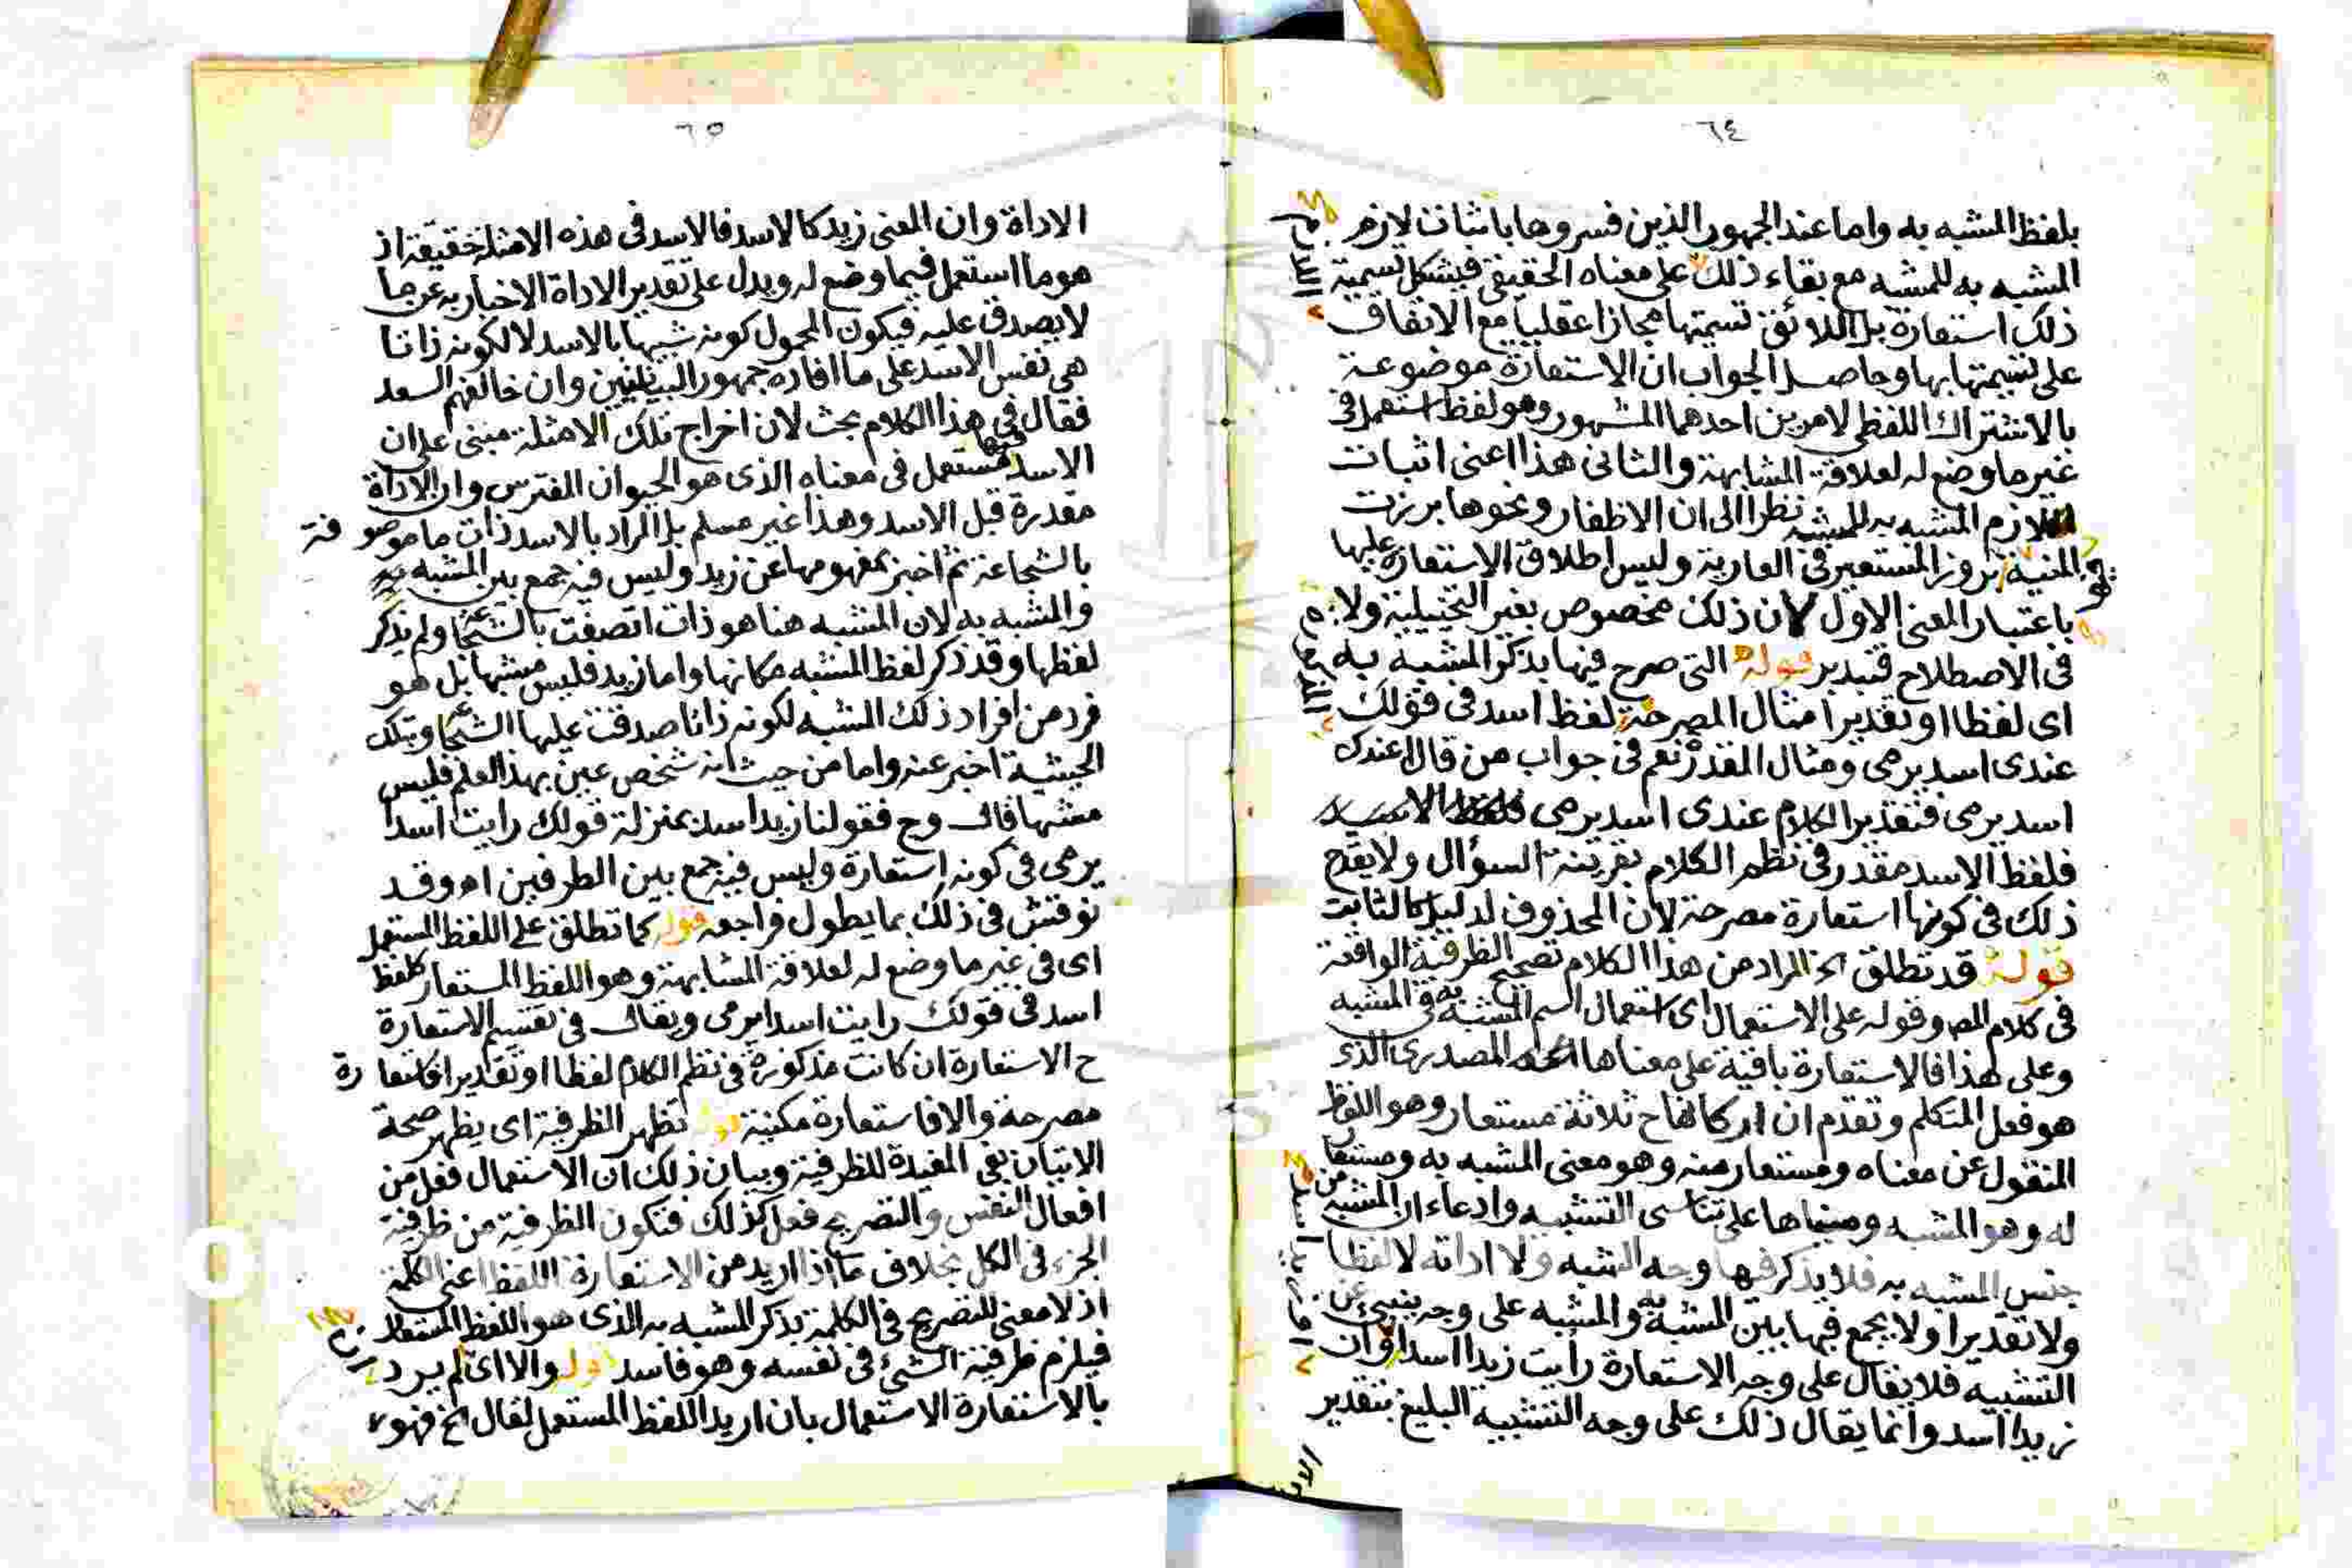 ٦٤
بلفظ المشبه به واما عند الجمهور الذين فسروها باثبات لازم
المشبه به للمشبه مع بقاء ذلك على معناه الحقيقي فيشكل تسمية
ذلك استعارة بل اللائق تسميتها مجازا عقليا مع الاتفاق
على تسميتها بها وحاصل الجواب ان الاستعارة موضوعة
بالاشتراك اللفظي لامرين احدهما المشهور وهو لفظ استعمل في
غير ما وضع له لعلاقة المشابهة والثاني هذا اعنى اثبات
لازم المشبه به للمشبه نظرا الى ان الاظفار ونحوها برزت
المنية بروز المستعير في العارية وليس اطلاق الاستعارة عليها
باعتبار المعنى الاول لان ذلك مخصوص بغير التخييلية ولا
في الاصطلاح فتدبر قوله التي صرح فيها بذكر المشبه به
اى لفظا او تقديرا مثال المصرحة لفظ اسد في قولك
عندى اسد يرمى ومثال المقدر نعم في جواب من قال اعندك
اسد يرمى فتقدير الكلام عندى اسد يرمى
فلفظ الاسد مقدر في نظم الكلام بقرينة السؤال ولا يقدح
ذلك في كونها استعارة مصرحة لان المحذوف لدليل كالثابت
قوله قد تطلق الخ المراد من هذا الكلام تصحيح الظرفية الواقعة
في كلام المص وقوله على الاستعمال اى استعمال اسم المشبه به في المشبه
وعلى هذا فالاستعارة باقية على معناها المصدرى الذى
هو فعل المتكلم وتقدم ان اركانها ح ثلاثة مستعار وهو اللفظ
المنقول عن معناه ومستعار منه وهو معنى المشبه به ومستعار
له وهو المشبه ومبناها على تناسى التشبيه وادعاء ان المشبه من
جنس المشبه به فلا يذكر فيها وجه الشبه ولا اداته لا لفظا
ولا تقديرا ولا يجمع فيها بين المشبه به والمشبه على وجه ينبئ عن
التشبيه فلا يقال على وجه الاستعارة رأيت زيدا اسدا وان
زيدا اسد وانما يقال ذلك على وجه التشبيه البليغ بتقدير
٦٥
الاداة وان المعنى زيد كالاسد فالاسد في هذه الامثلة حقيقة اذ
هو ما استعمل فيما وضع له ويدل على تقدير الاداة الاخبار به عن ما
لا يصدق عليه فيكون المحمول كونه شبيها بالاسد لا لكونه ذاتا
هى نفس الاسد على ما افاده جمهور البيانيين وان خالفهم السعد
فقال في هذا الكلام بحث لان اخراج تلك الامثلة مبنى على ان
الاسد فيها مستعمل في معناه الذى هو الحيوان المفترس وان الاداة
مقدرة قبل الاسد وهذا غير مسلم بل المراد بالاسد ذات ما موصوفة
بالشجاعة ثم اخبر بمفهومها عن زيد وليس فيه جمع بين المشبه به
والمشبه به لان المشبه هنا هو ذات اتصفت بالشجاعة ولم يذكر
لفظها وقد ذكر لفظ المشبه مكانها واما زيد فليس مشبها بل هو
فرد من افراد ذلك المشبه لكونه ذاتا صدقت عليها الشجاعة وبتلك
الحيثية اخبر عنه واما من حيث انه شخص عين بهذا العلم فليس
مشبها قال وح فقولنا زيد اسد بمنزلة قولك رايت اسدا
يرمى في كونه استعارة وليس فيه جمع بين الطرفين اه وقد
نوقش في ذلك بما يطول فراجعه قوله كما تطلق على اللفظ المستعمل
اى في غير ما وضع له لعلاقة المشابهة وهو اللفظ المستعار كلفظ
اسد في قولك رايت اسدا يرمى ويقال في تقسيم الاستعارة
ح الاستعارة ان كانت مذكورة في نظم الكلام لفظا او تقديرا فاستعارة
مصرحة والا فاستعارة مكنية قوله تظهر الظرفية اى يظهر صحة
الاتيان بفي المفيدة للظرفية وبيان ذلك ان الاستعمال فعل من
افعال النفس والتصريح فعل كذلك فتكون الظرفية من ظرفية
الجزء في الكل بخلاف ما اذا اريد من الاستعارة اللفظ اعنى الكلمة
اذ لا معنى للتصريح في الكلمة بذكر المشبه به الذى هو اللفظ المستعار
فيلزم ظرفية الشئ في نفسه وهو فاسد قوله والا اى لم يرد
بالاستعارة الاستعمال بان اريد اللفظ المستعمل لقال الخ فهو